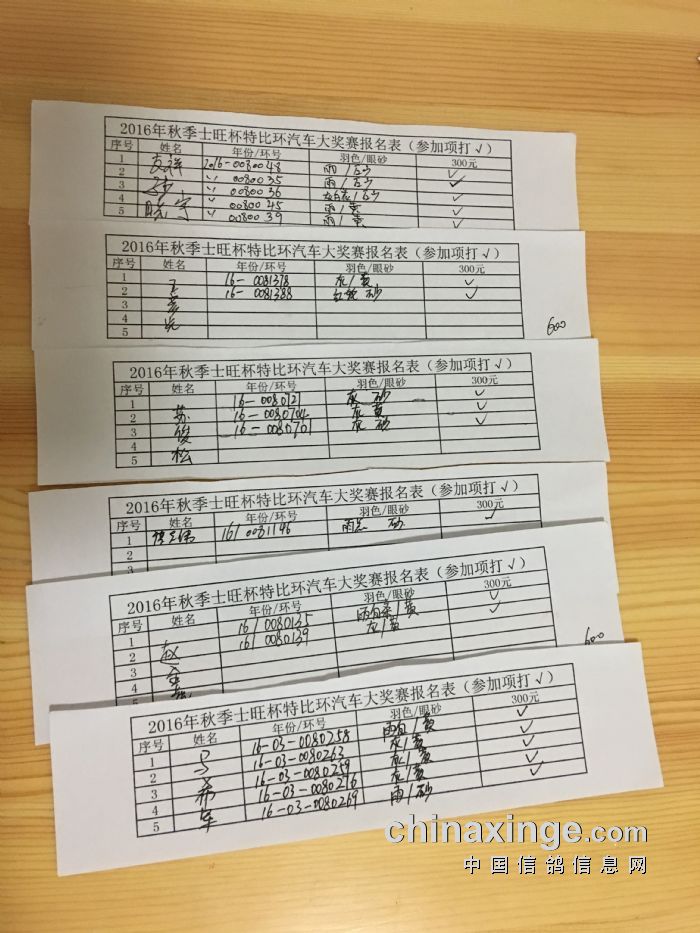 2016年秋季士旺杯特比环汽车大奖赛报名表（参加项打√）
序号 姓名 年份/环号 羽色/眼砂 300元
1 2016-0080048 雨/ √
2 〃 0080035 雨/ √
3 〃 0080036 √
4 〃 0080045 雨/黄 √
5 0080039 雨/黄 √
2016年秋季士旺杯特比环汽车大奖赛报名表（参加项打√）
序号 姓名 年份/环号 羽色/眼砂 300元
1 王 16-0081378 灰/黄 √
2 16-0081388 砂 √
3
4
5
600
2016年秋季士旺杯特比环汽车大奖赛报名表（参加项打√）
序号 姓名 年份/环号 羽色/眼砂 300元
1 苏 灰 砂 √
2 俊 16-0080704 灰 黄 √
3 松 16-0080701 灰 砂 √
4
5
2016年秋季士旺杯特比环汽车大奖赛报名表（参加项打√）
序号 姓名 年份/环号 羽色/眼砂 300元
1 16/ 0081146 砂 √
2
3
2016年秋季士旺杯特比环汽车大奖赛报名表（参加项打√）
序号 姓名 年份/环号 羽色/眼砂 300元
1 赵 16/ 0080135 /黄 √
2 16/ 0080139 灰/黄 √
3
4
5
600
2016年秋季士旺杯特比环汽车大奖赛报名表（参加项打√）
序号 姓名 年份/环号 羽色/眼砂 300元
1 马 16-03-0080258 雨白/黄 √
2 希 16-03-0080263 灰/黄 √
3 军 16-03-0080259 灰/黄 √
4 16-03-0080276 灰/黄 √
5 16-03-0080269 雨/砂 √
chinaxinge.com
中国信鸽信息网